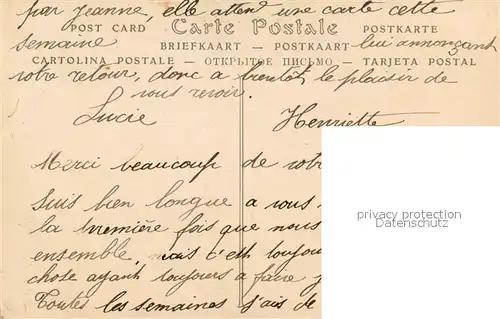 par Jeanne, elle attent une carte cette
POST CARD Carte Postale POSTKARTE
semaine BRIEFKAART — POSTKAART — lui annonçant
CARTOLINA POSTALE — ОТКРЫТОЕ ПИСЬМО — TARJETA POSTAL
votre retour, donc a bientôt le plaisir de
vous revoir.
Lucie Henriette
Merci beaucoup de votr
suis bien longue a vous
la première fois que nous
ensemble, mais c'est toujou
chose ayant toujours a faire
Toutes les semaines j'ais de
privacy protection
Datenschutz